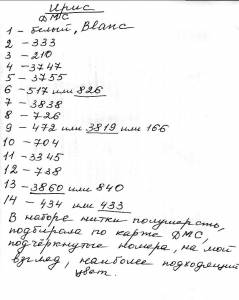 Ирис
ДМС
1 - белый, Blanc
2 - 333
3 - 210
4 - 3747
5 - 3755
6 - 517 или 826
7 - 3838
8 - 726
9 - 472 или 3819 или 166
10 - 704
11 - 3345
12 - 738
13 - 3860 или 840
14 - 434 или 433
В наборе нитки полушерсть,
подбирала по карте ДМС,
подчёркнутые номера, на мой
взгляд, наиболее подходящий
цвет.